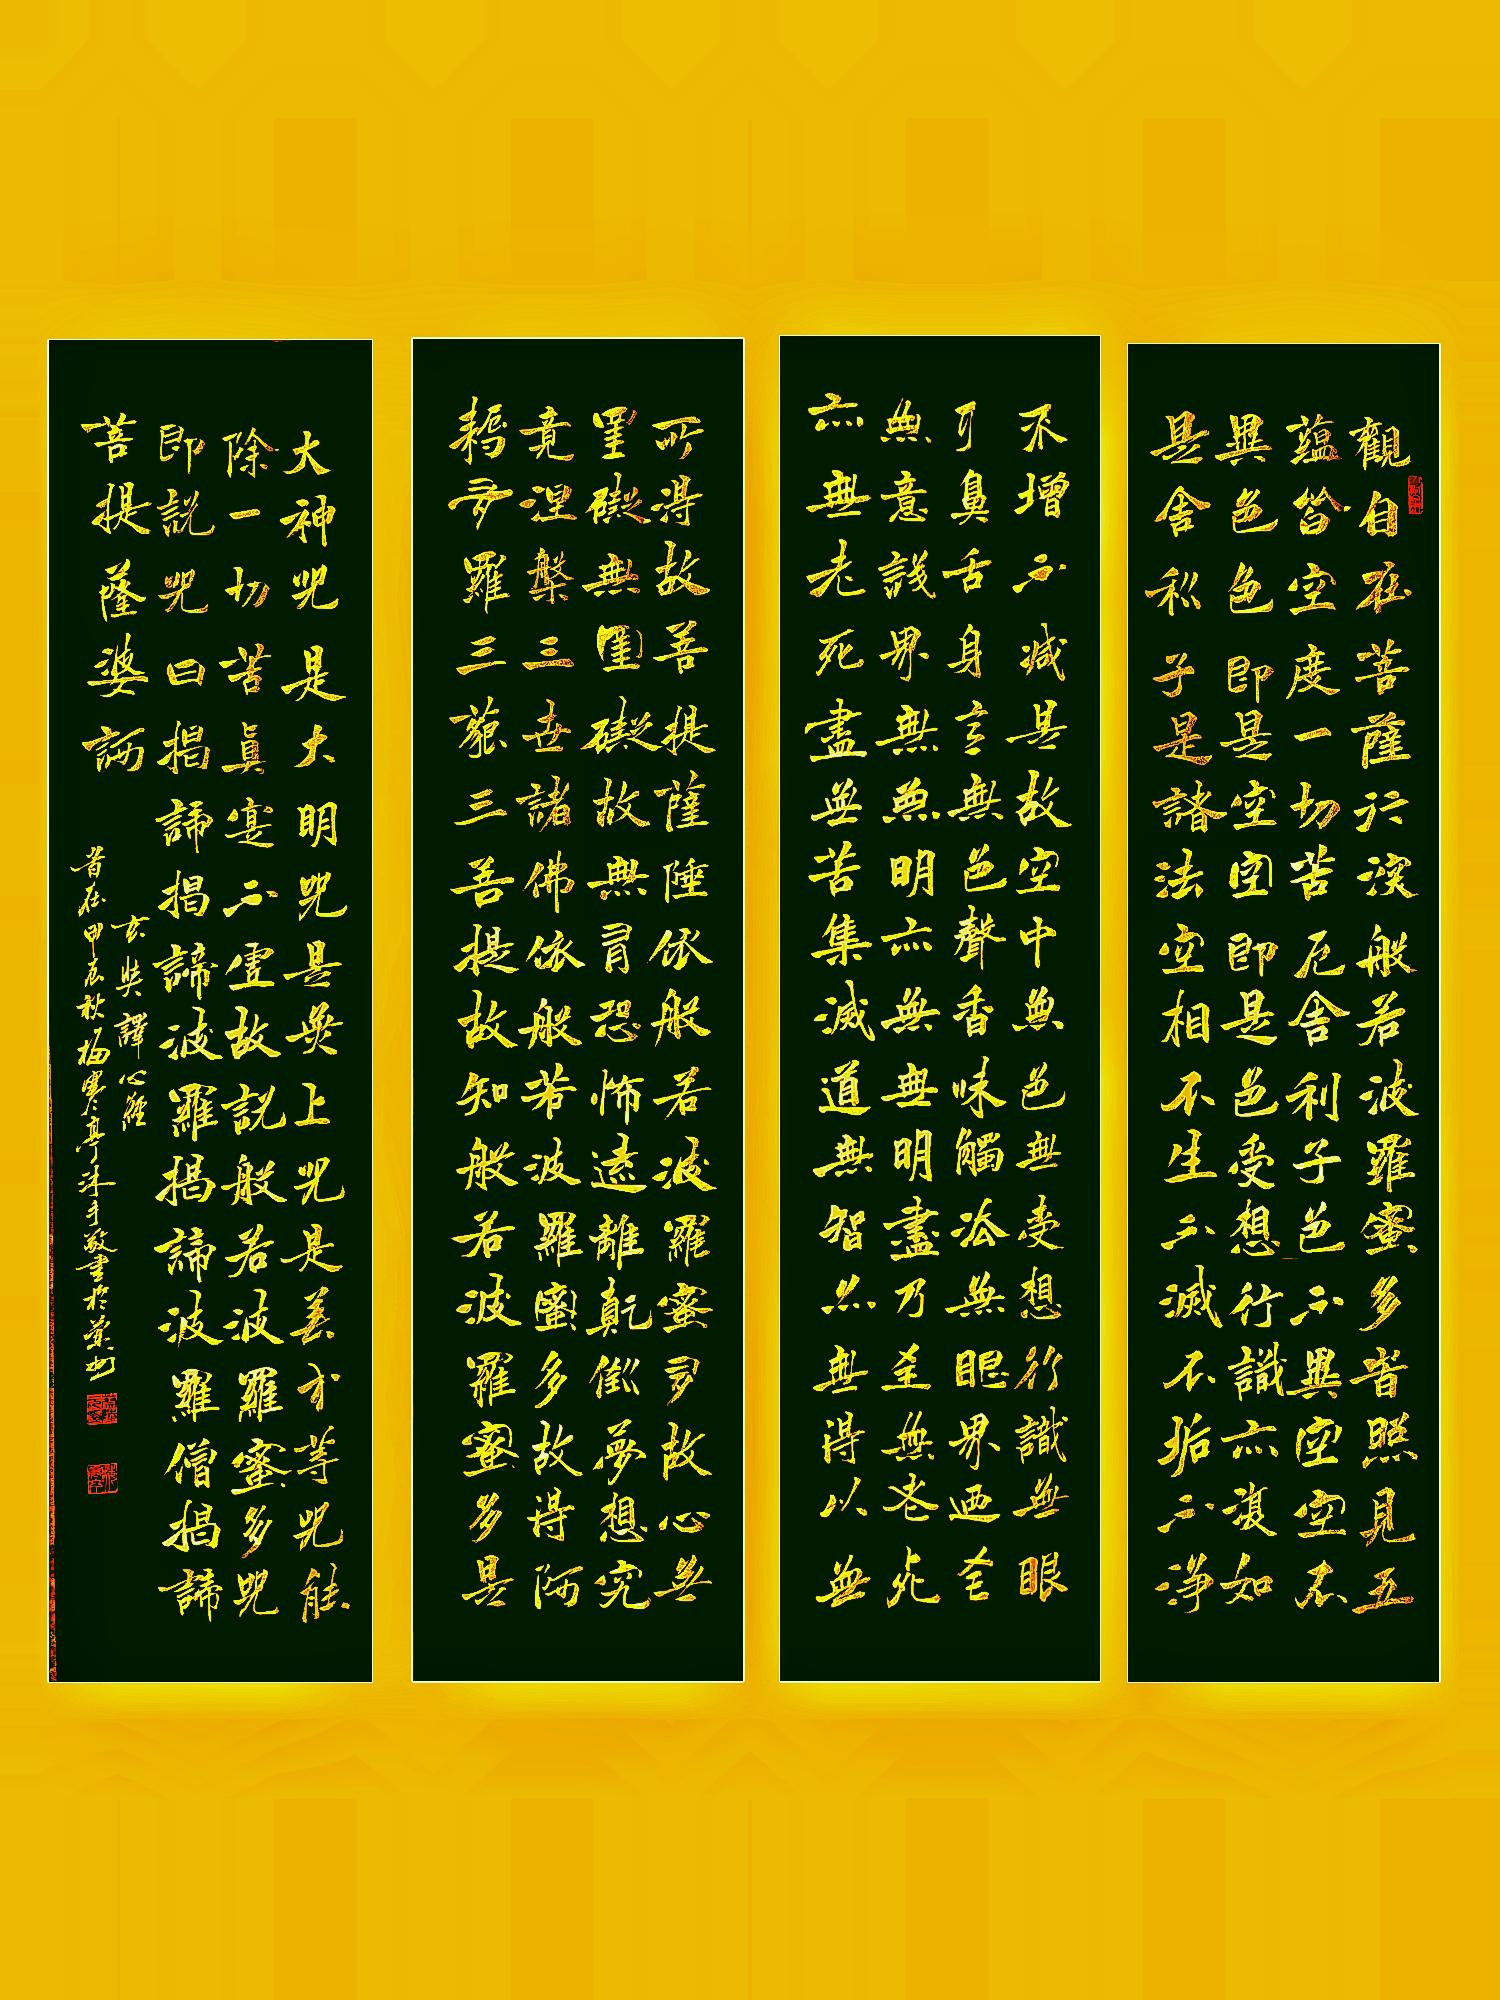 觀自在菩薩行深般若波羅蜜多旹照見五
蘊皆空度一切苦厄舍利子色不異空空不
異色色即是空空即是色受想行識亦復如
是舍利子是諸法空相不生不滅不垢不淨
不增不減是故空中無色無受想行識無眼
耳鼻舌身意無色聲香味觸法無眼界乃至
無意識界無無明亦無無明盡乃至無老死
亦無老死盡無苦集滅道無智亦無得以無
所得故菩提薩埵依般若波羅蜜多故心無
罣礙無罣礙故無有恐怖遠離顛倒夢想究
竟涅槃三世諸佛依般若波羅蜜多故得阿
耨多羅三藐三菩提故知般若波羅蜜多是
大神咒是大明咒是無上咒是無等等咒能
除一切苦真實不虛故說般若波羅蜜多咒
即說咒曰揭諦揭諦波羅揭諦波羅僧揭諦
菩提薩婆訶
玄奘譯心經
旹在甲辰秋寒亭沐手敬書於